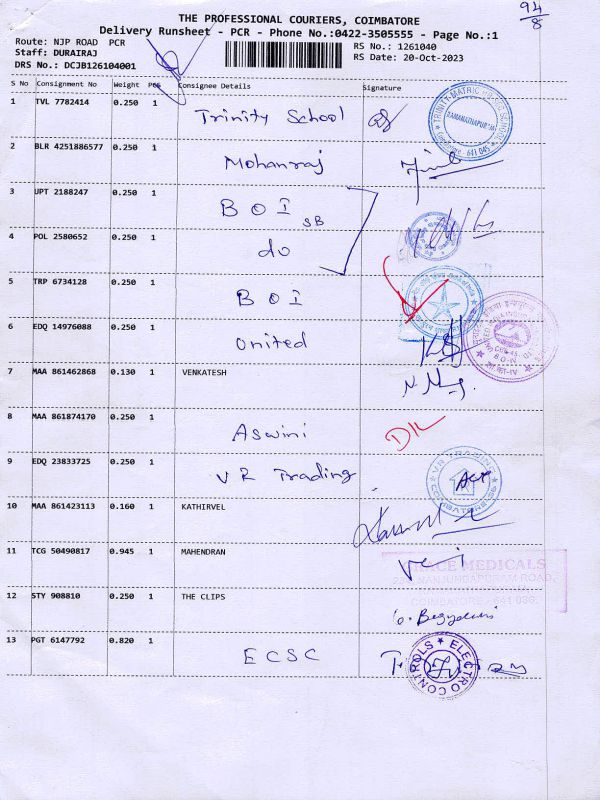 94/8
THE PROFESSIONAL COURIERS, COIMBATORE
Delivery Runsheet - PCR - Phone No.:0422-3505555 - Page No.:1
Route: NJP ROAD PCR
Staff: DURAIRAJ
DRS No.: DCJB126104001
RS No.: 1261040
RS Date: 20-Oct-2023
S No Consignment No Weight PCS Consignee Details Signature
1 TVL 7782414 0.250 1 Trinity School
TRINITY MATRIC HR.SEC SCHOOL RAMANATHAPURAM Coimbatore 641 045
2 BLR 4251886577 0.250 1 Mohanraj
3 UPT 2188247 0.250 1 BOI SB
4 POL 2580652 0.250 1 do
5 TRP 6734128 0.250 1 BOI
6 EDQ 14976088 0.250 1 United
7 MAA 861462868 0.130 1 VENKATESH
8 MAA 861874170 0.250 1 Aswini
9 EDQ 23833725 0.250 1 VR Trading
VR TRADING
10 MAA 861423113 0.160 1 KATHIRVEL
11 TCG 50490817 0.945 1 MAHENDRAN
MEDICALS
NANJUNDAPURAM ROAD,
12 STY 908810 0.250 1 THE CLIPS
13 PGT 6147792 0.820 1 ECSC
ELECTRO CONTROLS